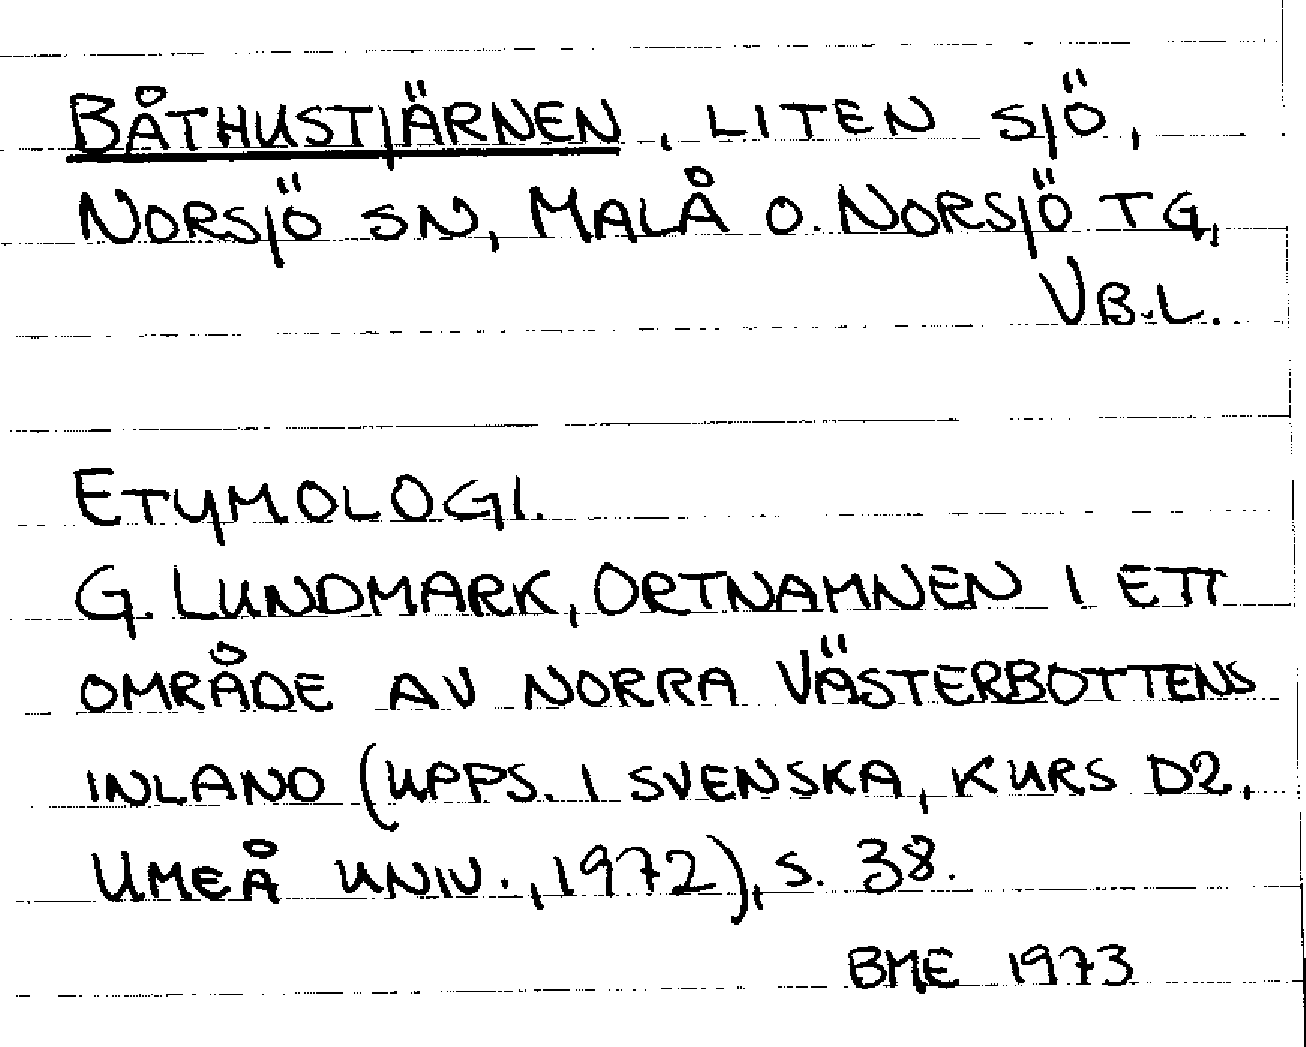 BÅTHUSTJÄRNEN, LITEN SJÖ,
NORSJÖ SN, MALÅ O. NORSJÖ TG,
VB.L.
ETYMOLOGI.
G. LUNDMARK, ORTNAMNEN I ETT
OMRÅDE AV NORRA VÄSTERBOTTENS
INLAND (UPPS. I SVENSKA, KURS D2,
UMEÅ UNIV., 1972), S. 38.
BME 1973